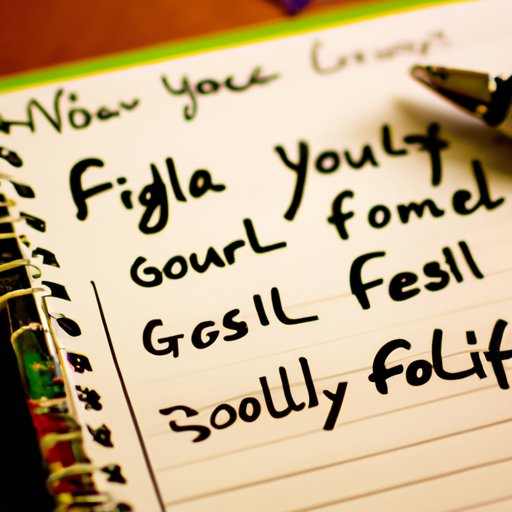 Now Youc
Figla Youlty
Gourl fomel
GgslL Fesll
Soolly folif